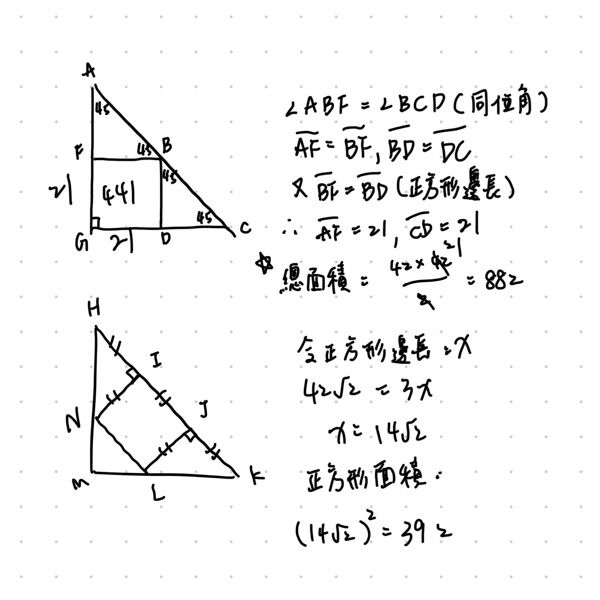 A
45
F
45
B
45
21
441
45
C
G
21
D
∠ABF = ∠BCD (同位角)
AF = BF, BD = DC
又 BF = BD (正方形邊長)
∴ AF = 21, CD = 21
☆ 總面積 = 42 × 42 21 / 2 = 882
H
I
J
N
M
L
K
令正方形邊長 = x
42√2 = 3x
x = 14√2
正方形面積:
(14√2)² = 392